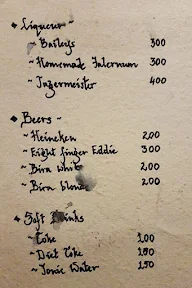 Liqueur -
~ Baileys 300
~ Homemade Falernum 300
~ Jagermeister 400
Beers -
~ Heineken 200
~ Eight finger Eddie 300
~ Bira white 200
~ Bira blonde 200
Soft Drinks
~ Coke 100
~ Diet Coke 150
~ Tonic Water 150